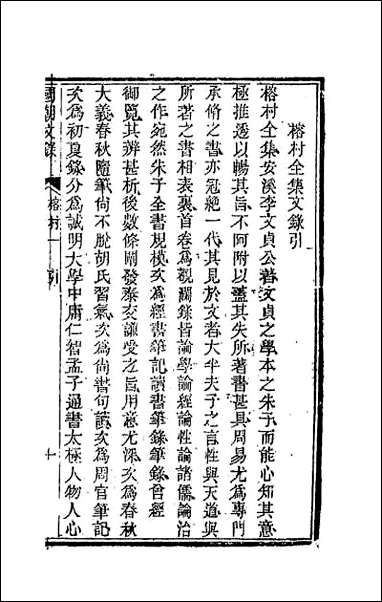 榕村全集文錄引
榕村全集安溪李文貞公著文貞之學本之朱子而能心知其意
極推透以暢其旨不阿附以蓋其失所著書甚具周易尤爲專門
承脩之書亦冠絕一代其見於文者大半夫子之言性與天道與
所著之書相表裏首卷爲觀瀾錄皆論學論經論性論諸儒論治
之作宛然朱子全書規模次爲經書筆記讀書筆錄筆錄曾經
御覽其辨甚析後數條闡發泰交謙受之旨用意尤深次爲春秋
大義春秋隨筆尙不脫胡氏習氣次爲尙書句讀次爲周官筆記
次爲初夏錄分爲誠明大學中庸仁智孟子通書太極人物人心
國朝文錄 榕村一 引 十